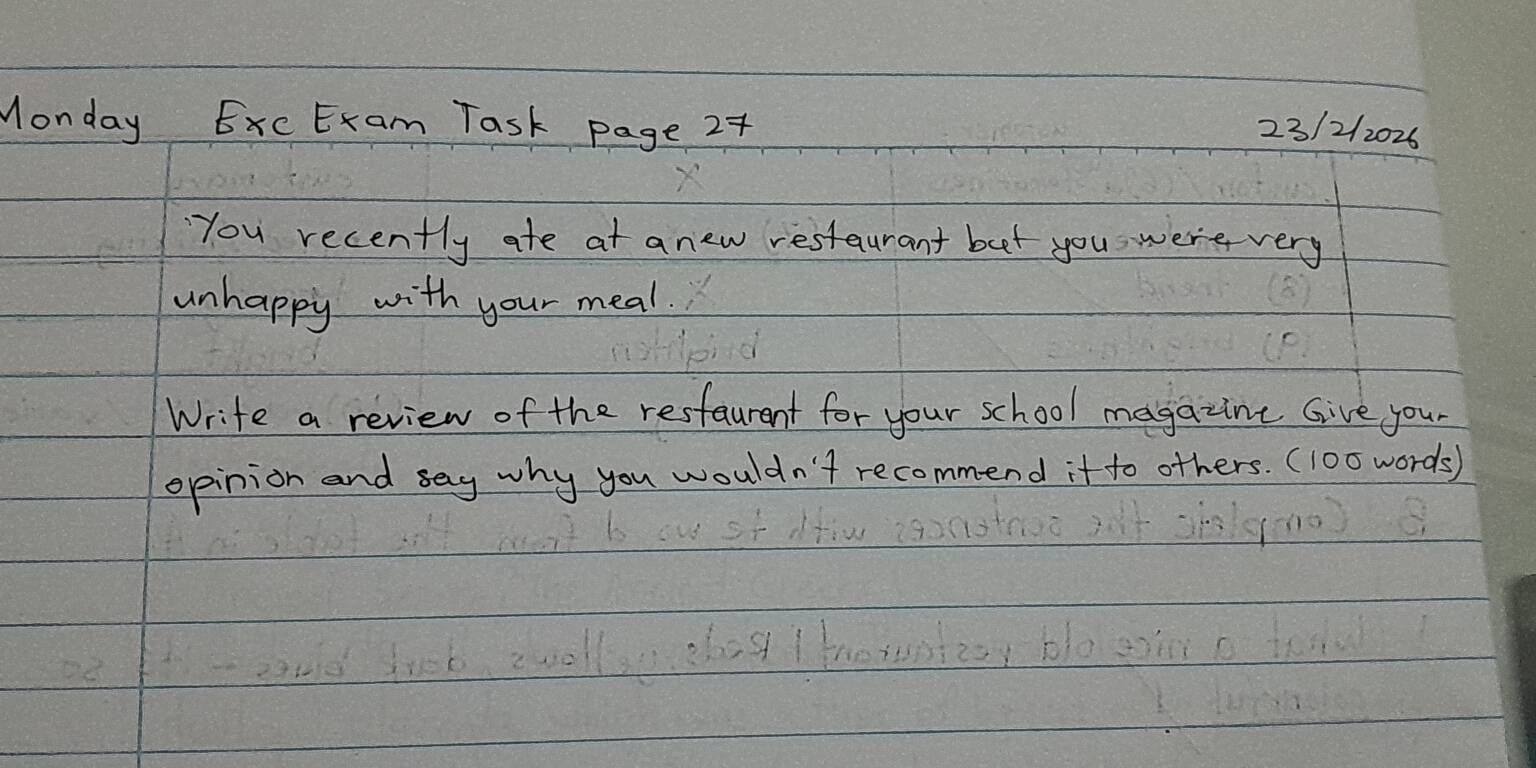 Monday Exc Exam Task page 27 23/2/2026
X
You recently ate at a new restaurant but you were very
unhappy with your meal.
Write a review of the restaurant for your school magazine Give your
opinion and say why you wouldn't recommend it to others. (100 words)